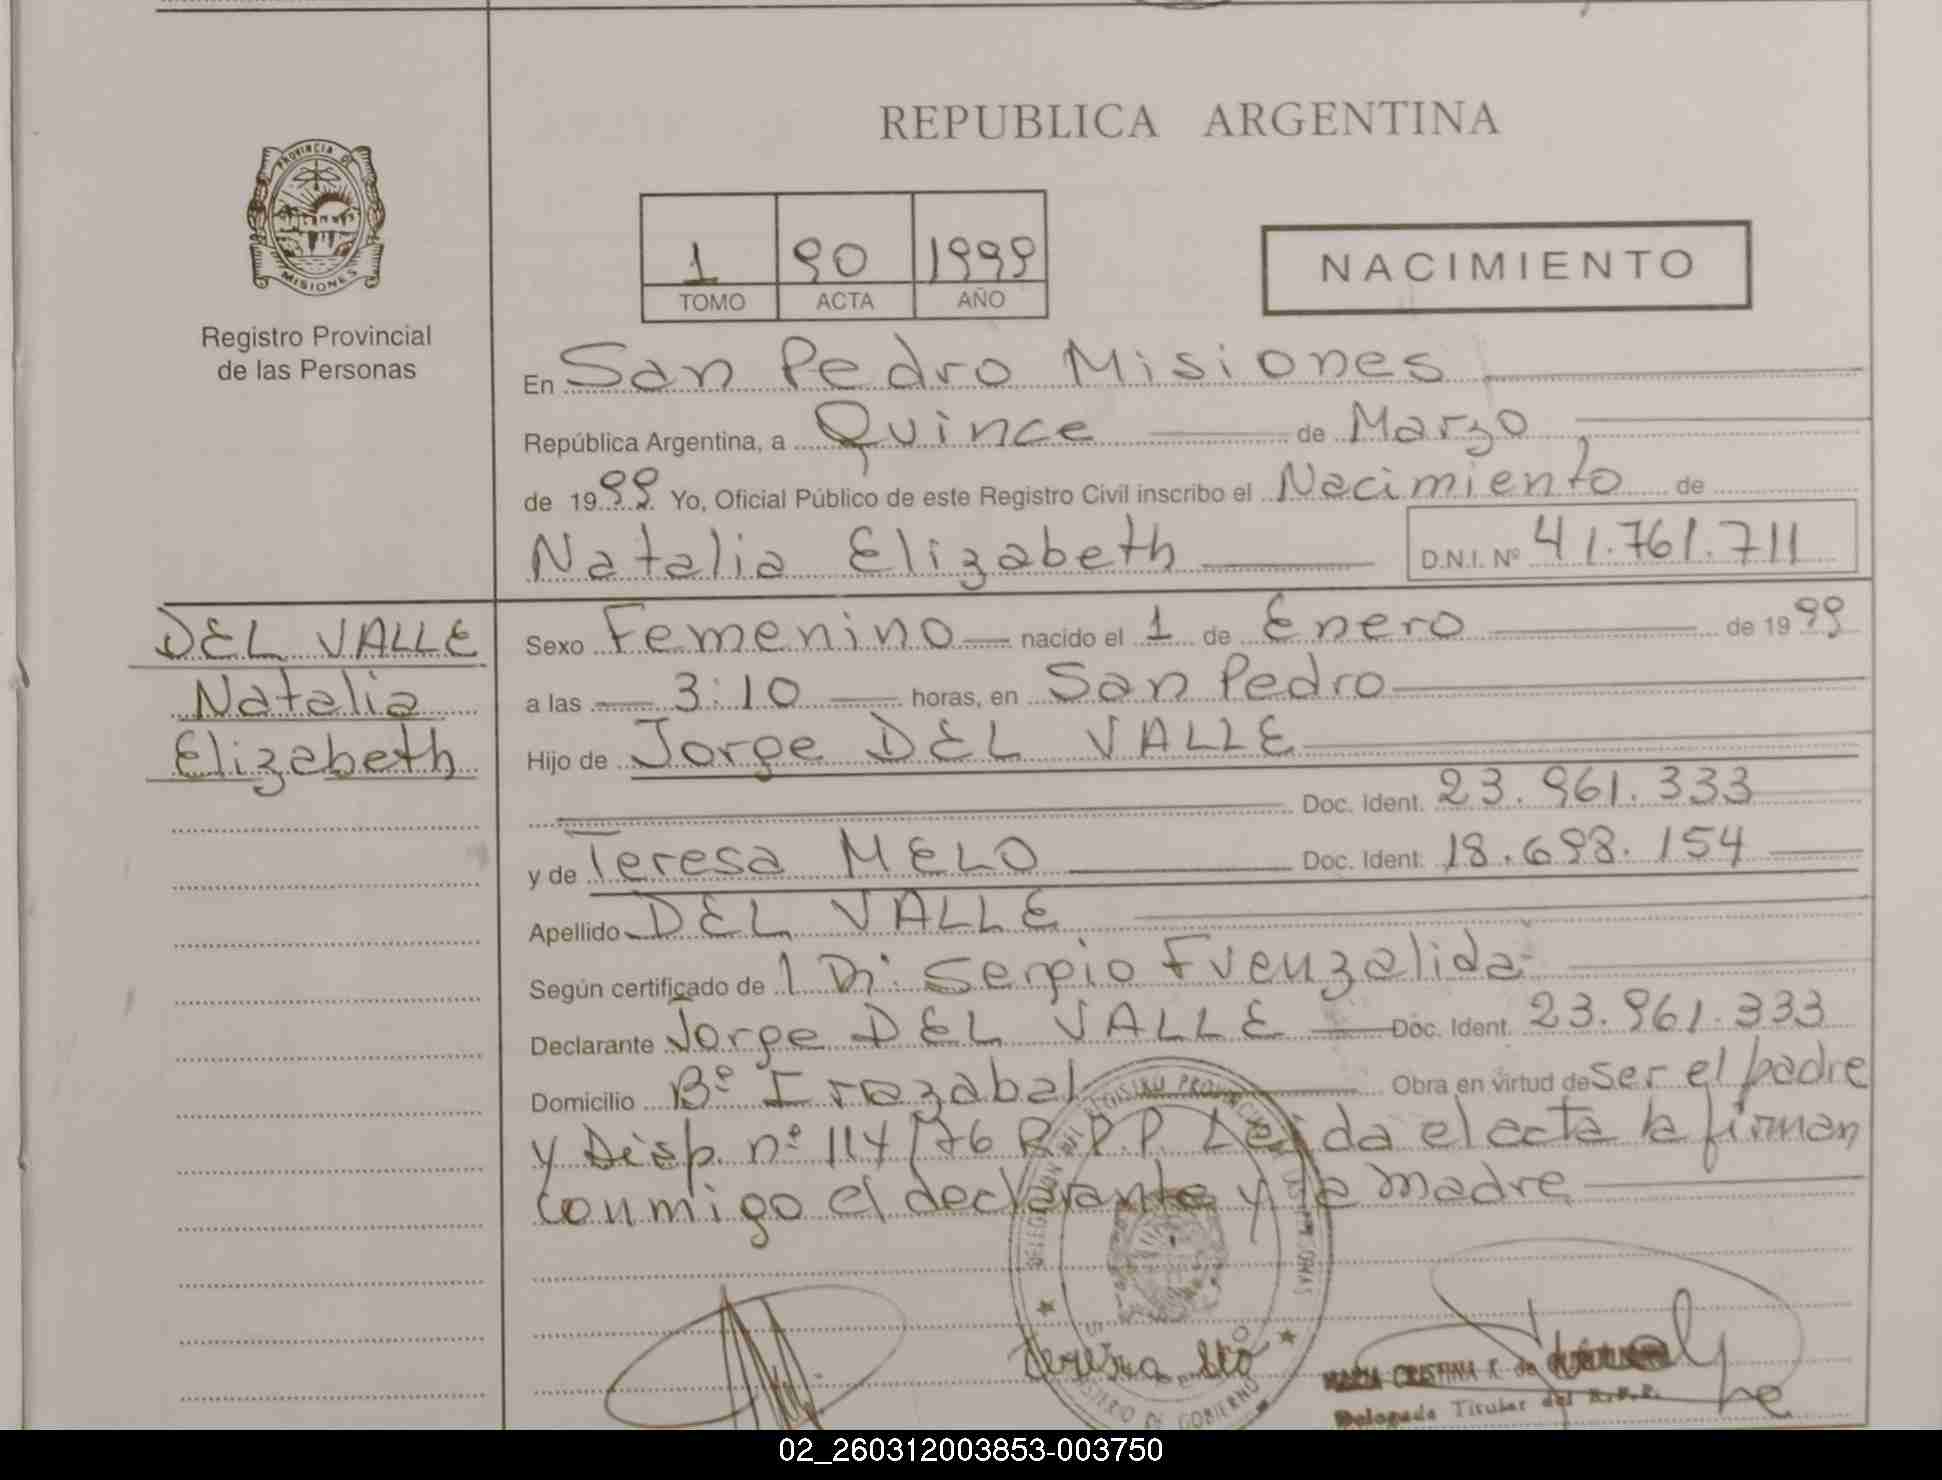 REPUBLICA ARGENTINA
PROVINCIA DE
MISIONES
Registro Provincial
de las Personas
1 90 1999
TOMO ACTA AÑO
NACIMIENTO
En San Pedro Misiones
República Argentina, a Quince de Marzo
de 1999 Yo, Oficial Público de este Registro Civil inscribo el Nacimiento de
Natalia Elizabeth D.N.I. Nº 41.761.711
DEL VALLE
Natalia
Elizabeth
Sexo Femenino nacido el 1 de Enero de 1999
a las 3:10 horas, en San Pedro
Hijo de Jorge DEL VALLE
Doc. Ident. 23.961.333
y de Teresa MELO Doc. Ident. 18.698.154
Apellido DEL VALLE
Según certificado de l Dr: Sergio Fuenzalida
Declarante Jorge DEL VALLE Doc. Ident. 23.961.333
Domicilio Bº Irrazabal Obra en virtud de ser el padre
y Disp. nº 114/76 R.P.P. Leida el acta la firman
conmigo el declarante y la madre
MARIA CRISTINA R. de
Delegada Titular del R.P.P.
02_260312003853-003750